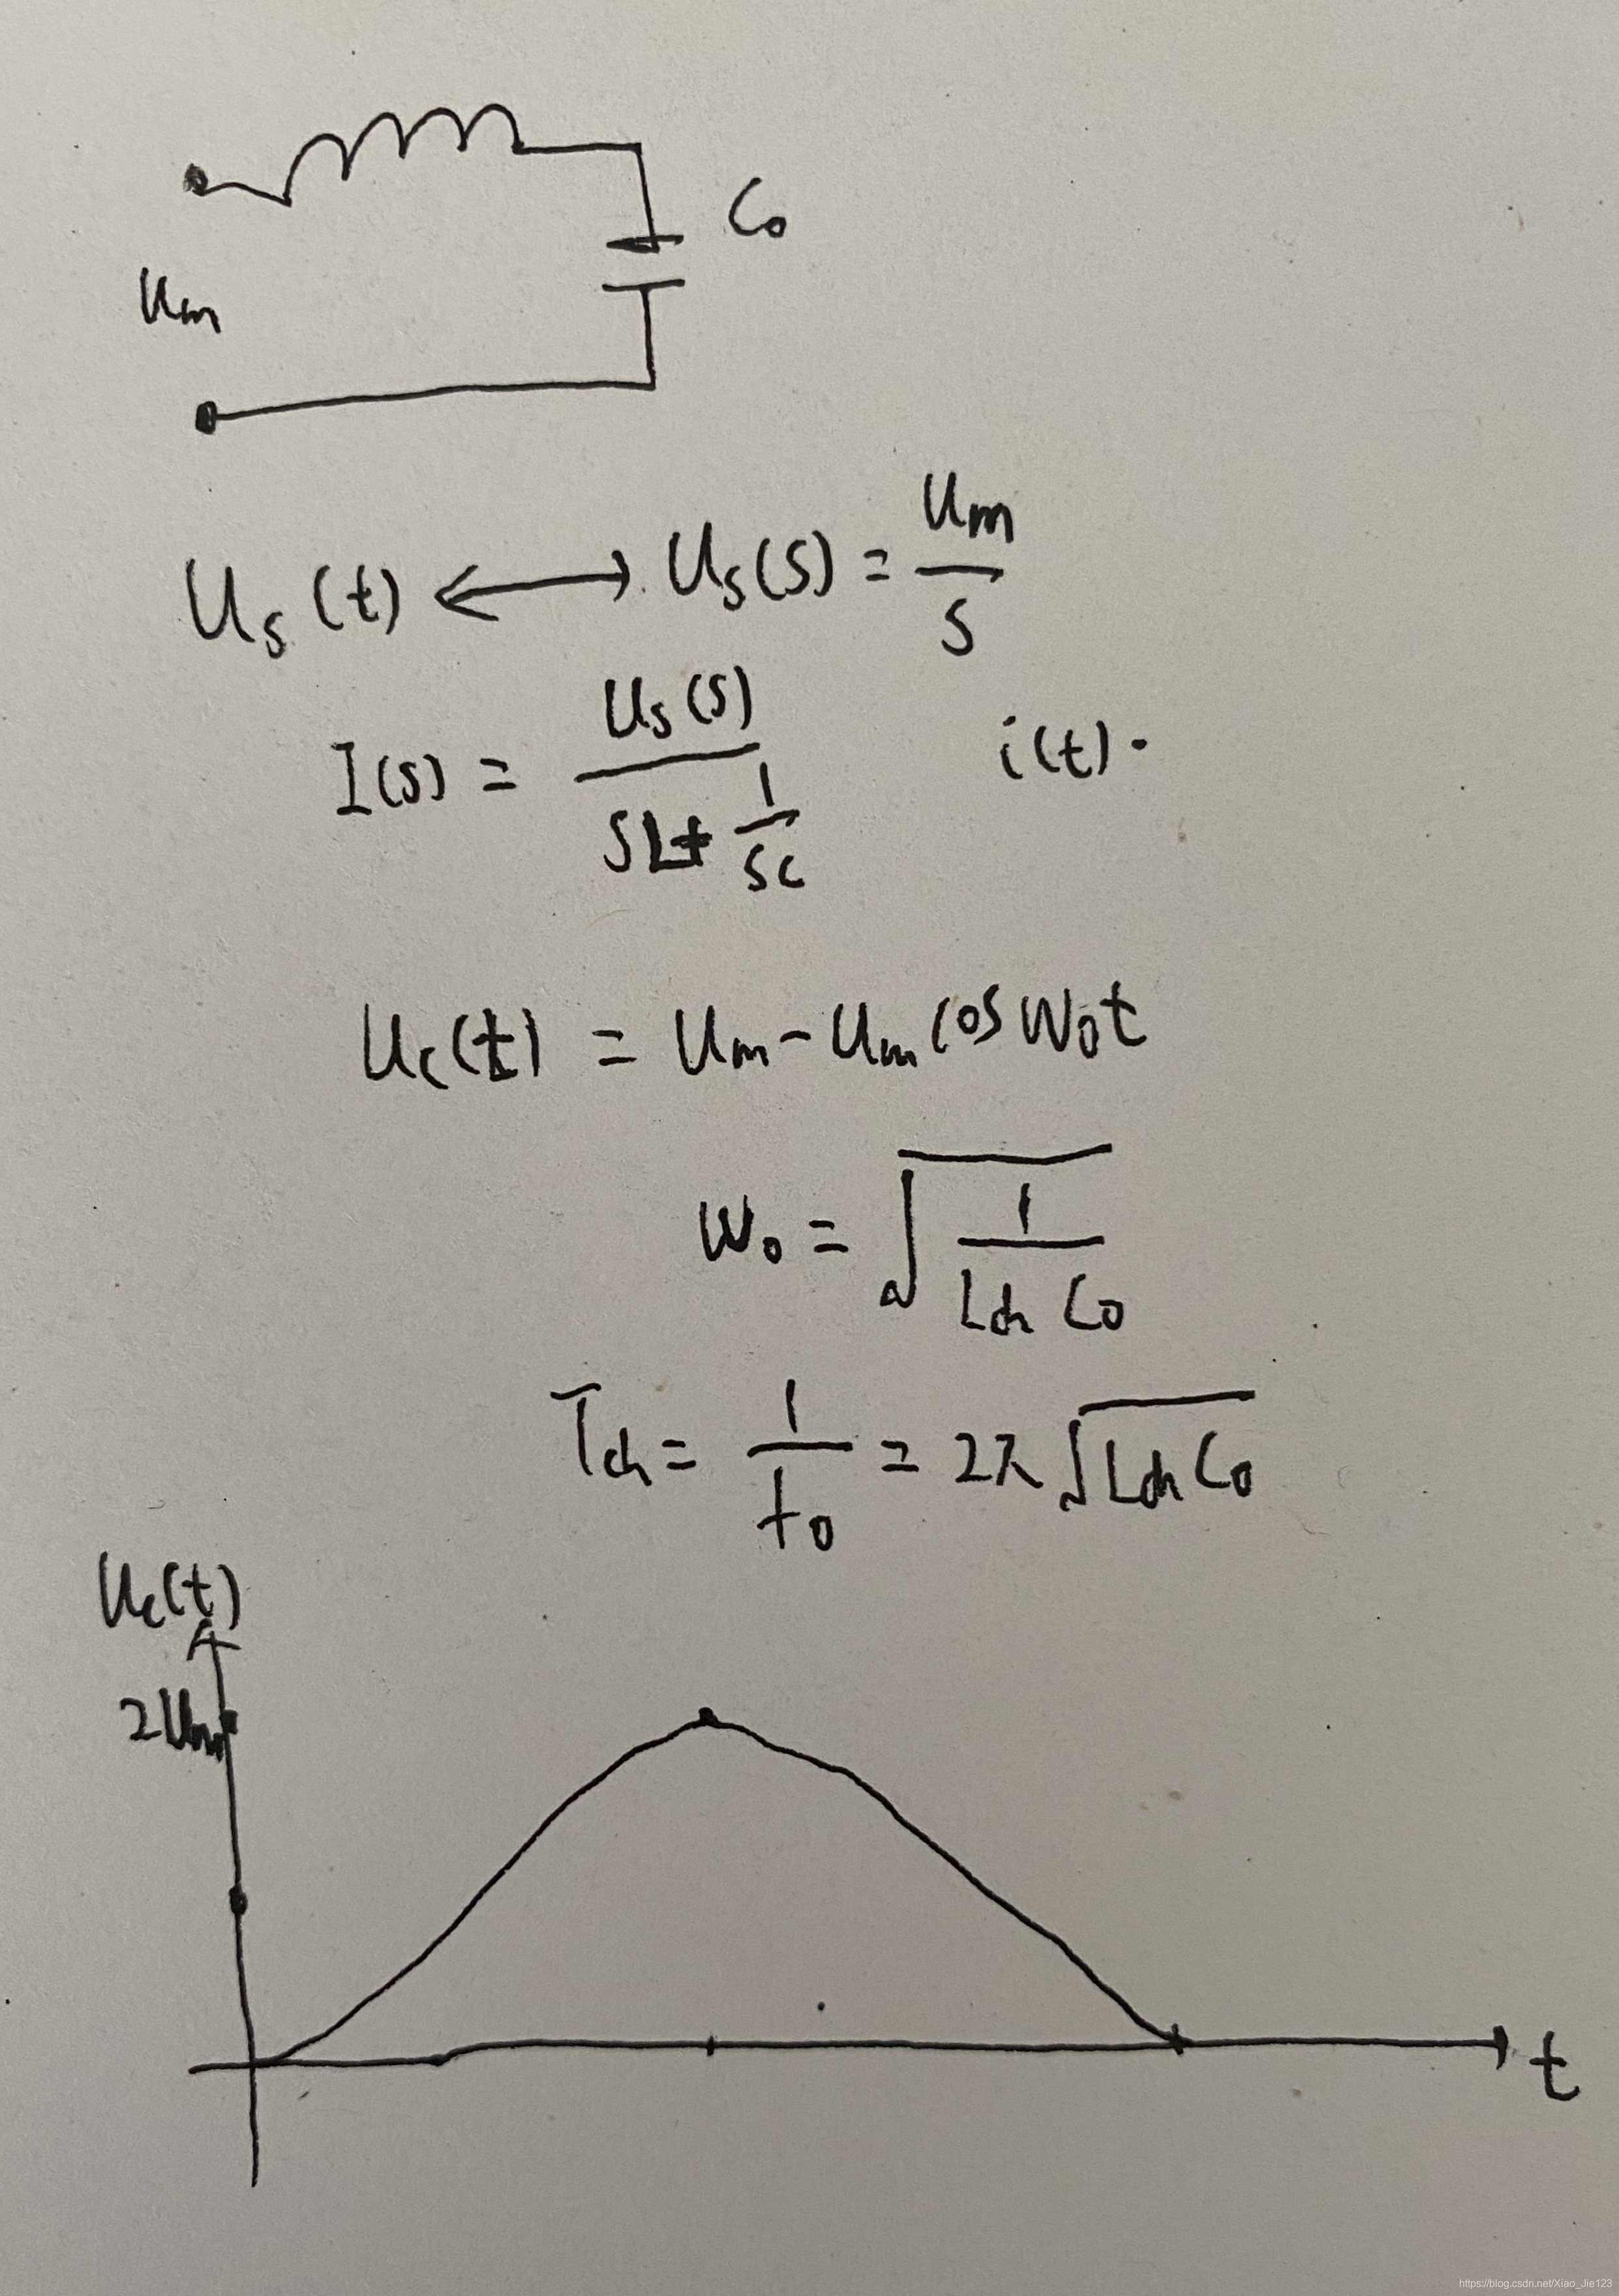 C₀
Um
Us(t) ⟷ Us(s) = Um/s
I(s) = Us(s)/(sL + 1/sC) i(t).
Uc(t) = Um - Um cos W₀t
W₀ = √(1/(Lch C₀))
Tch = 1/f₀ = 2π√(Lch C₀)
Uc(t)
2Um
t
https://blog.csdn.net/Xiao_Jie123